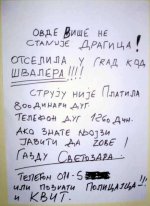 ОВДЕ ВИШЕ НЕ
СТАНУЈЕ ДРАГИЦА!
ОТСЕЛИЛА У ГРАД КОД
ШВАЛЕРА!!!!
СТРУЈУ НИЈЕ ПЛАТИЛА
800 ДИНАРИ ДУГ
ТЕЛЕФОН ДУГ 1260 ДИН.
АКО ЗНАТЕ ЊОЈЗИ
ЈАВИТИ ДА ЗОВЕ!
ГАЗДУ СВЕТОЗАРА
ТЕЛЕФОН 011-5
ИЛИ ПОЗВАТИ ПОЛИЦАЈЦА!!!
И КВИТ.